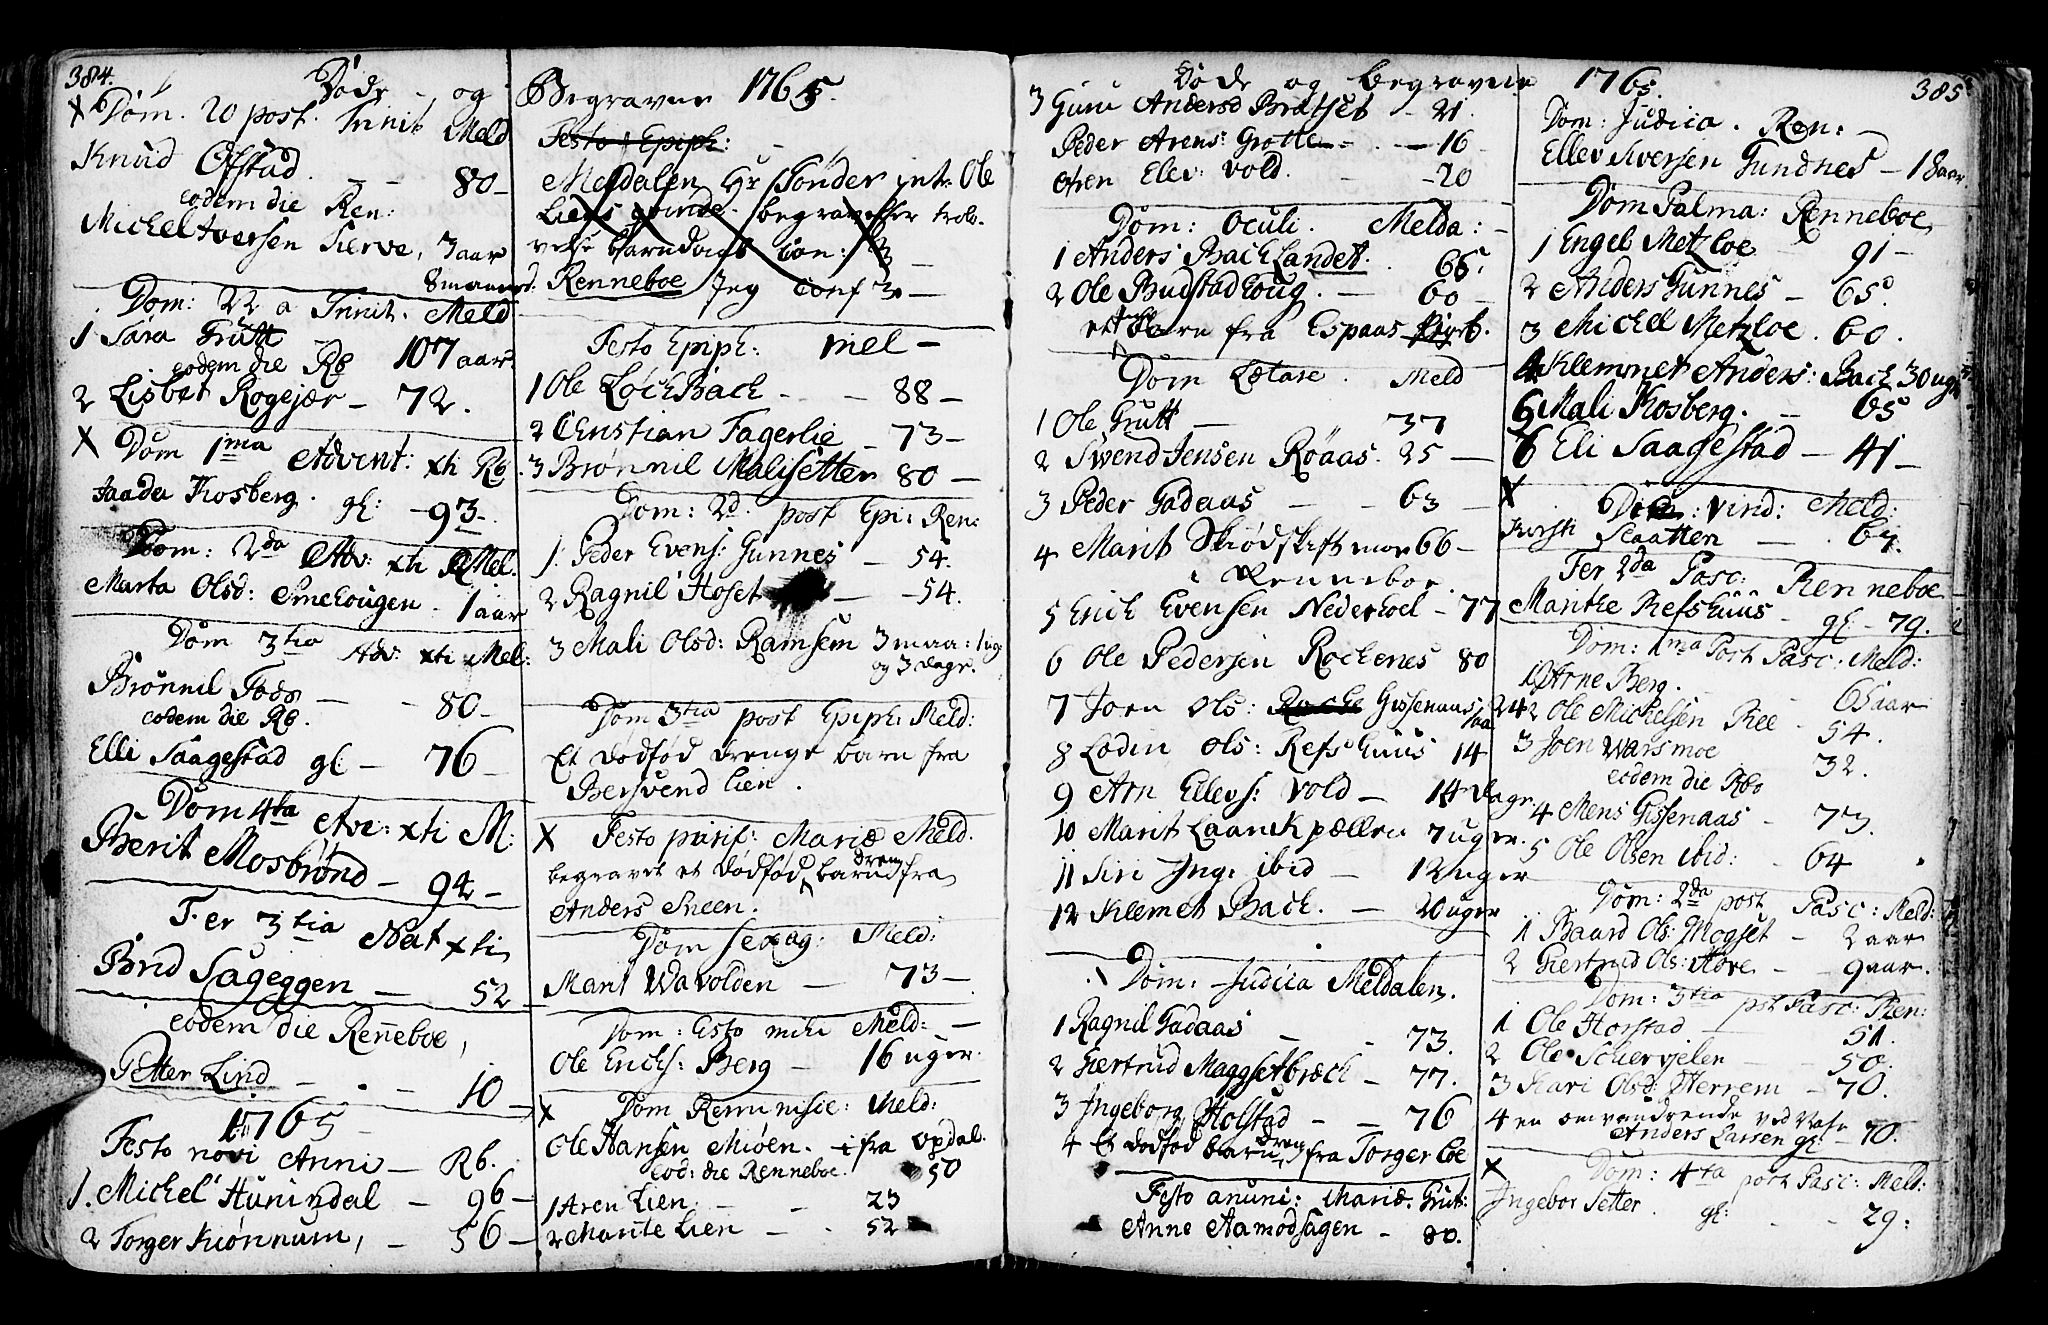 384.
Døde og
X Dom. 20 post. Trinit Meld
Knud Ofstad. - - 80-
eodem die Ren:
Michel Iversen Sterve, 3 aar
8 maaned.
Dom: 22 a Trinit. Meld
1 Sara Grutt - 107 aar
eodem die Rb
2 Lisbet Rogejær - 72.
X Dom 1ma Advent: xti Rb.
Haada Kosberg. gl: - 93-
Dom: 2da Adv: xti Mel.
Marta Olsd: Smehougen - 1 aar
Dom 3tia Adv: xti Mel:
Brønnil Foss - - 80-
eodem die Rb.
Elli Saagestad gl: - 76-
Dom 4ta Adv: xti M:
Berit Mosbrønd - 94-
Fer 3tia Nat xti
Brid Sageggen - 52
eodem die Renneboe,
Petter Lind - . - 10-
1765
Festo novi Anni - Rb.
1. Michel Hunindal - 96-
2 Torger Kiønnum, - 56-
Begravne 1765.
Festo Epiph:
Meldalen Hr Sønder intr. Ole
Liens qvinde. begravelser trolo-
velse barndaab Con: 3 -
Renneboe Jeg Conf 3 -
Festo Epiph: Mel -
1 Ole Løch Bach - - 88-
2 Christian Fagerlie - 73-
3 Brønnil Malisetter 80-
Dom: 2d. post Epi: Ren:
1. Peder Evens: Gunnes - 54.
2 Ragnil Hoset - -54.
3 Mali Olsd: Ramsem 3 maa: 1 ug
og 3 dage.
Dom 3tia post Epiph: Meld:
Et dødfød drenge barn fra
Bersvend Lien.
X Festo purif: Mariæ Meld.
begravet et dødfød dreng barn fra
Anders Sneen.
Dom sexag: Meld:
Marit Wavolden - 73-
Dom: Esto mihi Meld: -
Ole Erichs: Berg - 16 uger.
X Dom Reminisce: Meld:
Ole Hansen Mioen. - i fra Opdal.
eod: die Renneboe. 50
1 Aren Lien - - 23
2 Marite Lien - . 52
Døde og begravne 1765.
385
3 Guru Andersd Bratset - 21.
Peder Arens: Grotte - . - 16
Even Elev: Vold. - -20
Dom: Oculi. Melda: -
1 Anders Bach Landet. . 66.
2 Ole Budstadhoug. - 60-
et barn fra Espaas
Dom Lætare. Meld
1 Ole Grutt - 37
2 Swend Jensen Røaas. 25 -
3 Peder Gadaas - - 63 -
4 Marit Skiødskift mor 66-
i Renneboe
5 Erich Evensen Nederhoel - 77
6 Ole Pedersen Rochenes 80
7 Joen Ols: Gissenaas 24
8 Lodin Ols: Refshuus 14
9 Arn Ellevs: Vold - 14 dage.
10 Marit Laanchpællen 7 uger.
11 Siri Ing: ibid - 12 uger
12 Klemet Bach. - 20 uger
Dom: Judica Meldalen.
1 Ragnil Gadaas - - 73.
2 Giertrud Maggsetbrech - 77.
3 Ingeborg Holstad - - 76
4 Et dødfød dreng barn fra Torger Loe
Festo anunc: Mariæ. Grut:
Anne Aamodsagen - 80.
Dom: Judica. Ren: -
Ellev Siversen Gundnes - 18 aar.
Dom Palma: Renneboe
1 Engel Metzloe 91-
2 Anders Gunnes - 65.
3 Michel Metzloe. 60.
4 Klemmet Anders: Bach 30 ug:
5 Mali Kosberg. - 65
6 Eli Saagestad - 41-
X Dom: Virid: Meld:
Kirsti Slaatten - . 64.
Fer 2da Pasc: Renneboe
Marithe Refshuus - gl- 79.
Dom: 1ma Post Pasc: Meld:
1 Arne Berg. - 65 aar
2 Ole Michelsen Ree - 54.
3 Joen Warsmoe 32.
eodem die Rbo
4 Mens Gissenaas - 73.
5 Ole Olsen ibid: - 64
Dom: 2da post Pasc: Meld:
1 Baard Ols: Mogset - 2 aar
2 Giertrud Ols: Hove - - 9 aar.
Dom: 3tia pst Pasc: Ren:
1 Ole Horstad - 51.
2 Ole Schervielen - 50.
3 Kari Olsd: Herrem - 70.
4 en omvandrende ved Nafn
Anders Larsen gl - 70.
X Dom: 4ta post Pasc: Meld:
Ingebor Setter. gl: - - 29: